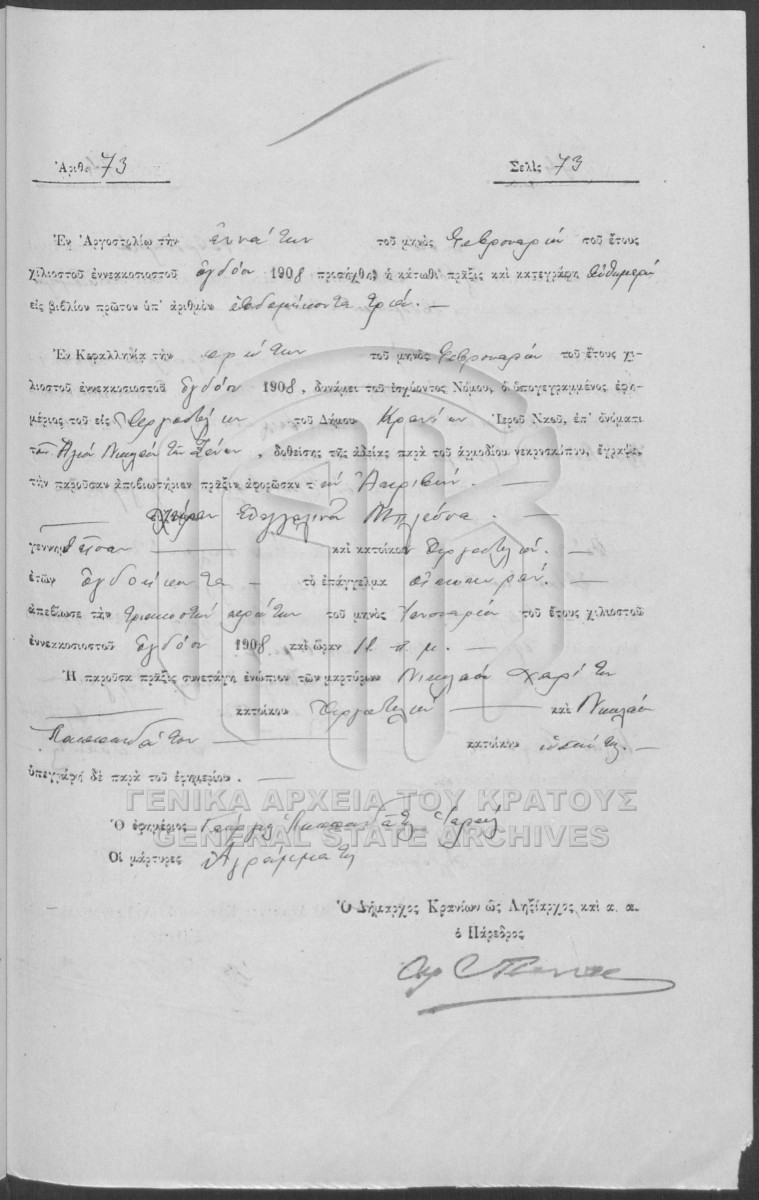 Ἀριθ. 73
Σελὶς 73
Ἐν Ἀργοστολίῳ τὴν ἐννάτην τοῦ μηνὸς Φεβρουαρίου τοῦ ἔτους
χιλιοστοῦ ἐννεακοσιοστοῦ ὀγδόου 1908 προσήχθη ἡ κάτωθι πρᾶξις καὶ κατεγράφη αὐθημερὸν
εἰς βιβλίον πρῶτον ὑπ' ἀριθμὸν ἑβδομήκοντα τρία. —
Ἐν Κεφαλληνίᾳ τὴν πρώτην τοῦ μηνὸς Φεβρουαρίου τοῦ ἔτους χι-
λιοστοῦ ἐννεακοσιοστοῦ ὀγδόου 1908, δυνάμει τοῦ ἰσχύοντος Νόμου, ὁ ὑπογεγραμμένος ἐφη-
μέριος τοῦ εἰς Ἀργοστόλιον τοῦ Δήμου Κρανίων Ἱεροῦ Ναοῦ, ἐπ' ὀνόματι
τοῦ Ἁγίου Νικολάου τῶν Ξένων, δοθείσης τῆς ἀδείας παρὰ τοῦ ἁρμοδίου νεκροσκόπου, ἔγραψε,
τὴν παροῦσαν ἀποβιωτήριον πρᾶξιν ἀφορῶσαν τὴν
γεννηθεῖσαν καὶ κάτοικον Ἀργοστολίου. —
ἐτῶν ὀγδοήκοντα — τὸ ἐπάγγελμα οἰκοκυράν. —
ἀπεβίωσε τὴν τριακοστὴν πρώτην τοῦ μηνὸς Ἰανουαρίου τοῦ ἔτους χιλιοστοῦ
ἐννεακοσιοστοῦ ὀγδόου 1908 καὶ ὥραν 11 π. μ. —
Ἡ παροῦσα πρᾶξις συνετάγη ἐνώπιον τῶν μαρτύρων Νικολάου
κατοίκου Ἀργοστολίου — καὶ Νικολάου
Παππανδάτου — κατοίκου —
ὑπεγράφη δὲ παρὰ τοῦ ἐφημερίου. —
ΓΕΝΙΚΑ ΑΡΧΕΙΑ ΤΟΥ ΚΡΑΤΟΥΣ
Ὁ ἐφημέριος Γεώργιος Παππανδάτος Ἱερεύς
GENERAL STATE ARCHIVES
Οἱ μάρτυρες Ἀγράμματοι
Ὁ Δήμαρχος Κρανίων ὡς Ληξίαρχος καὶ α. α.
ὁ Πάρεδρος